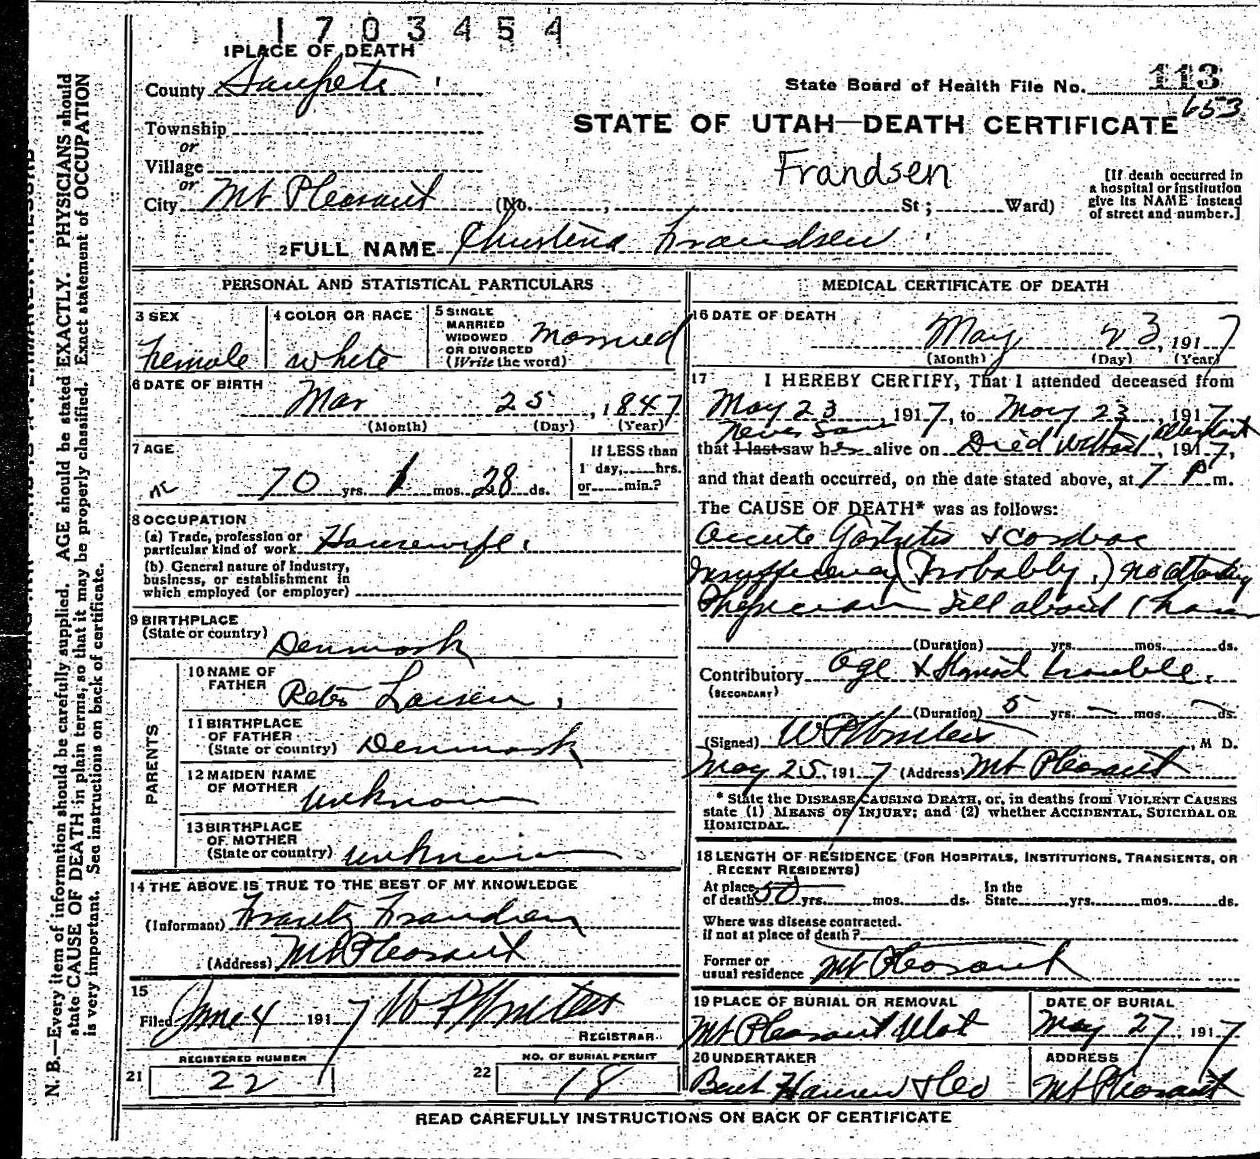 1703454
1 PLACE OF DEATH
County Sanpete
State Board of Health File No. 113
653
STATE OF UTAH—DEATH CERTIFICATE
Township
or
Village
or
City Mt Pleasant (No. , St ; Ward)
Frandsen
[If death occurred in
a hospital or institution
give its NAME instead
of street and number.]
2 FULL NAME Christina Frandsen
PERSONAL AND STATISTICAL PARTICULARS
3 SEX
Female
4 COLOR OR RACE
White
5 SINGLE
MARRIED
WIDOWED
OR DIVORCED
(Write the word)
Married
6 DATE OF BIRTH
Mar 25, 1847
(Month) (Day) (Year)
7 AGE
70 yrs. 1 mos. 28 ds.
If LESS than
1 day, hrs.
or min.?
8 OCCUPATION
(a) Trade, profession or
particular kind of work Housewife
(b) General nature of industry,
business, or establishment in
which employed (or employer)
9 BIRTHPLACE
(State or country) Denmark
PARENTS
10 NAME OF
FATHER Peter Larsen
11 BIRTHPLACE
OF FATHER
(State or country) Denmark
12 MAIDEN NAME
OF MOTHER unknown
13 BIRTHPLACE
OF MOTHER
(State or country) unknown
14 THE ABOVE IS TRUE TO THE BEST OF MY KNOWLEDGE
(Informant) Frantz Frandsen
(Address) Mt Pleasant
15
Filed June 4 1917
REGISTRAR
REGISTERED NUMBER
21 22
NO. OF BURIAL PERMIT
22 18
MEDICAL CERTIFICATE OF DEATH
16 DATE OF DEATH
May 23, 1917
(Month) (Day) (Year)
17 I HEREBY CERTIFY, That I attended deceased from
May 23, 1917, to May 23, 1917
never saw
that I last saw her alive on Died without attendant, 1917,
and that death occurred, on the date stated above, at 7 P m.
The CAUSE OF DEATH* was as follows:
Accute Gastritis & Cardiac
Insufficiency (Probably.) no attending
Physician Ill about 1 hour
(Duration) yrs. mos. ds.
Contributory Age & Stomach trouble.
(SECONDARY)
(Duration) 5 yrs. – mos. – ds.
(Signed) , M D.
May 25. 1917 (Address) Mt Pleasant
* State the DISEASE CAUSING DEATH, or, in deaths from VIOLENT CAUSES
state (1) MEANS OF INJURY; and (2) whether ACCIDENTAL, SUICIDAL OR
HOMICIDAL.
18 LENGTH OF RESIDENCE (FOR HOSPITALS, INSTITUTIONS, TRANSIENTS, OR
RECENT RESIDENTS)
At place
of death 50 yrs. mos. ds.
In the
State yrs. mos. ds.
Where was disease contracted.
if not at place of death?
Former or
usual residence Mt Pleasant
19 PLACE OF BURIAL OR REMOVAL
Mt Pleasant Utah
DATE OF BURIAL
May 27, 1917
20 UNDERTAKER
Hansen & Co
ADDRESS
Mt Pleasant
READ CAREFULLY INSTRUCTIONS ON BACK OF CERTIFICATE
N. B.—Every item of information should be carefully supplied. AGE should be stated EXACTLY. PHYSICIANS should
state CAUSE OF DEATH in plain terms, so that it may be properly classified. Exact statement of OCCUPATION
is very important. See instructions on back of certificate.